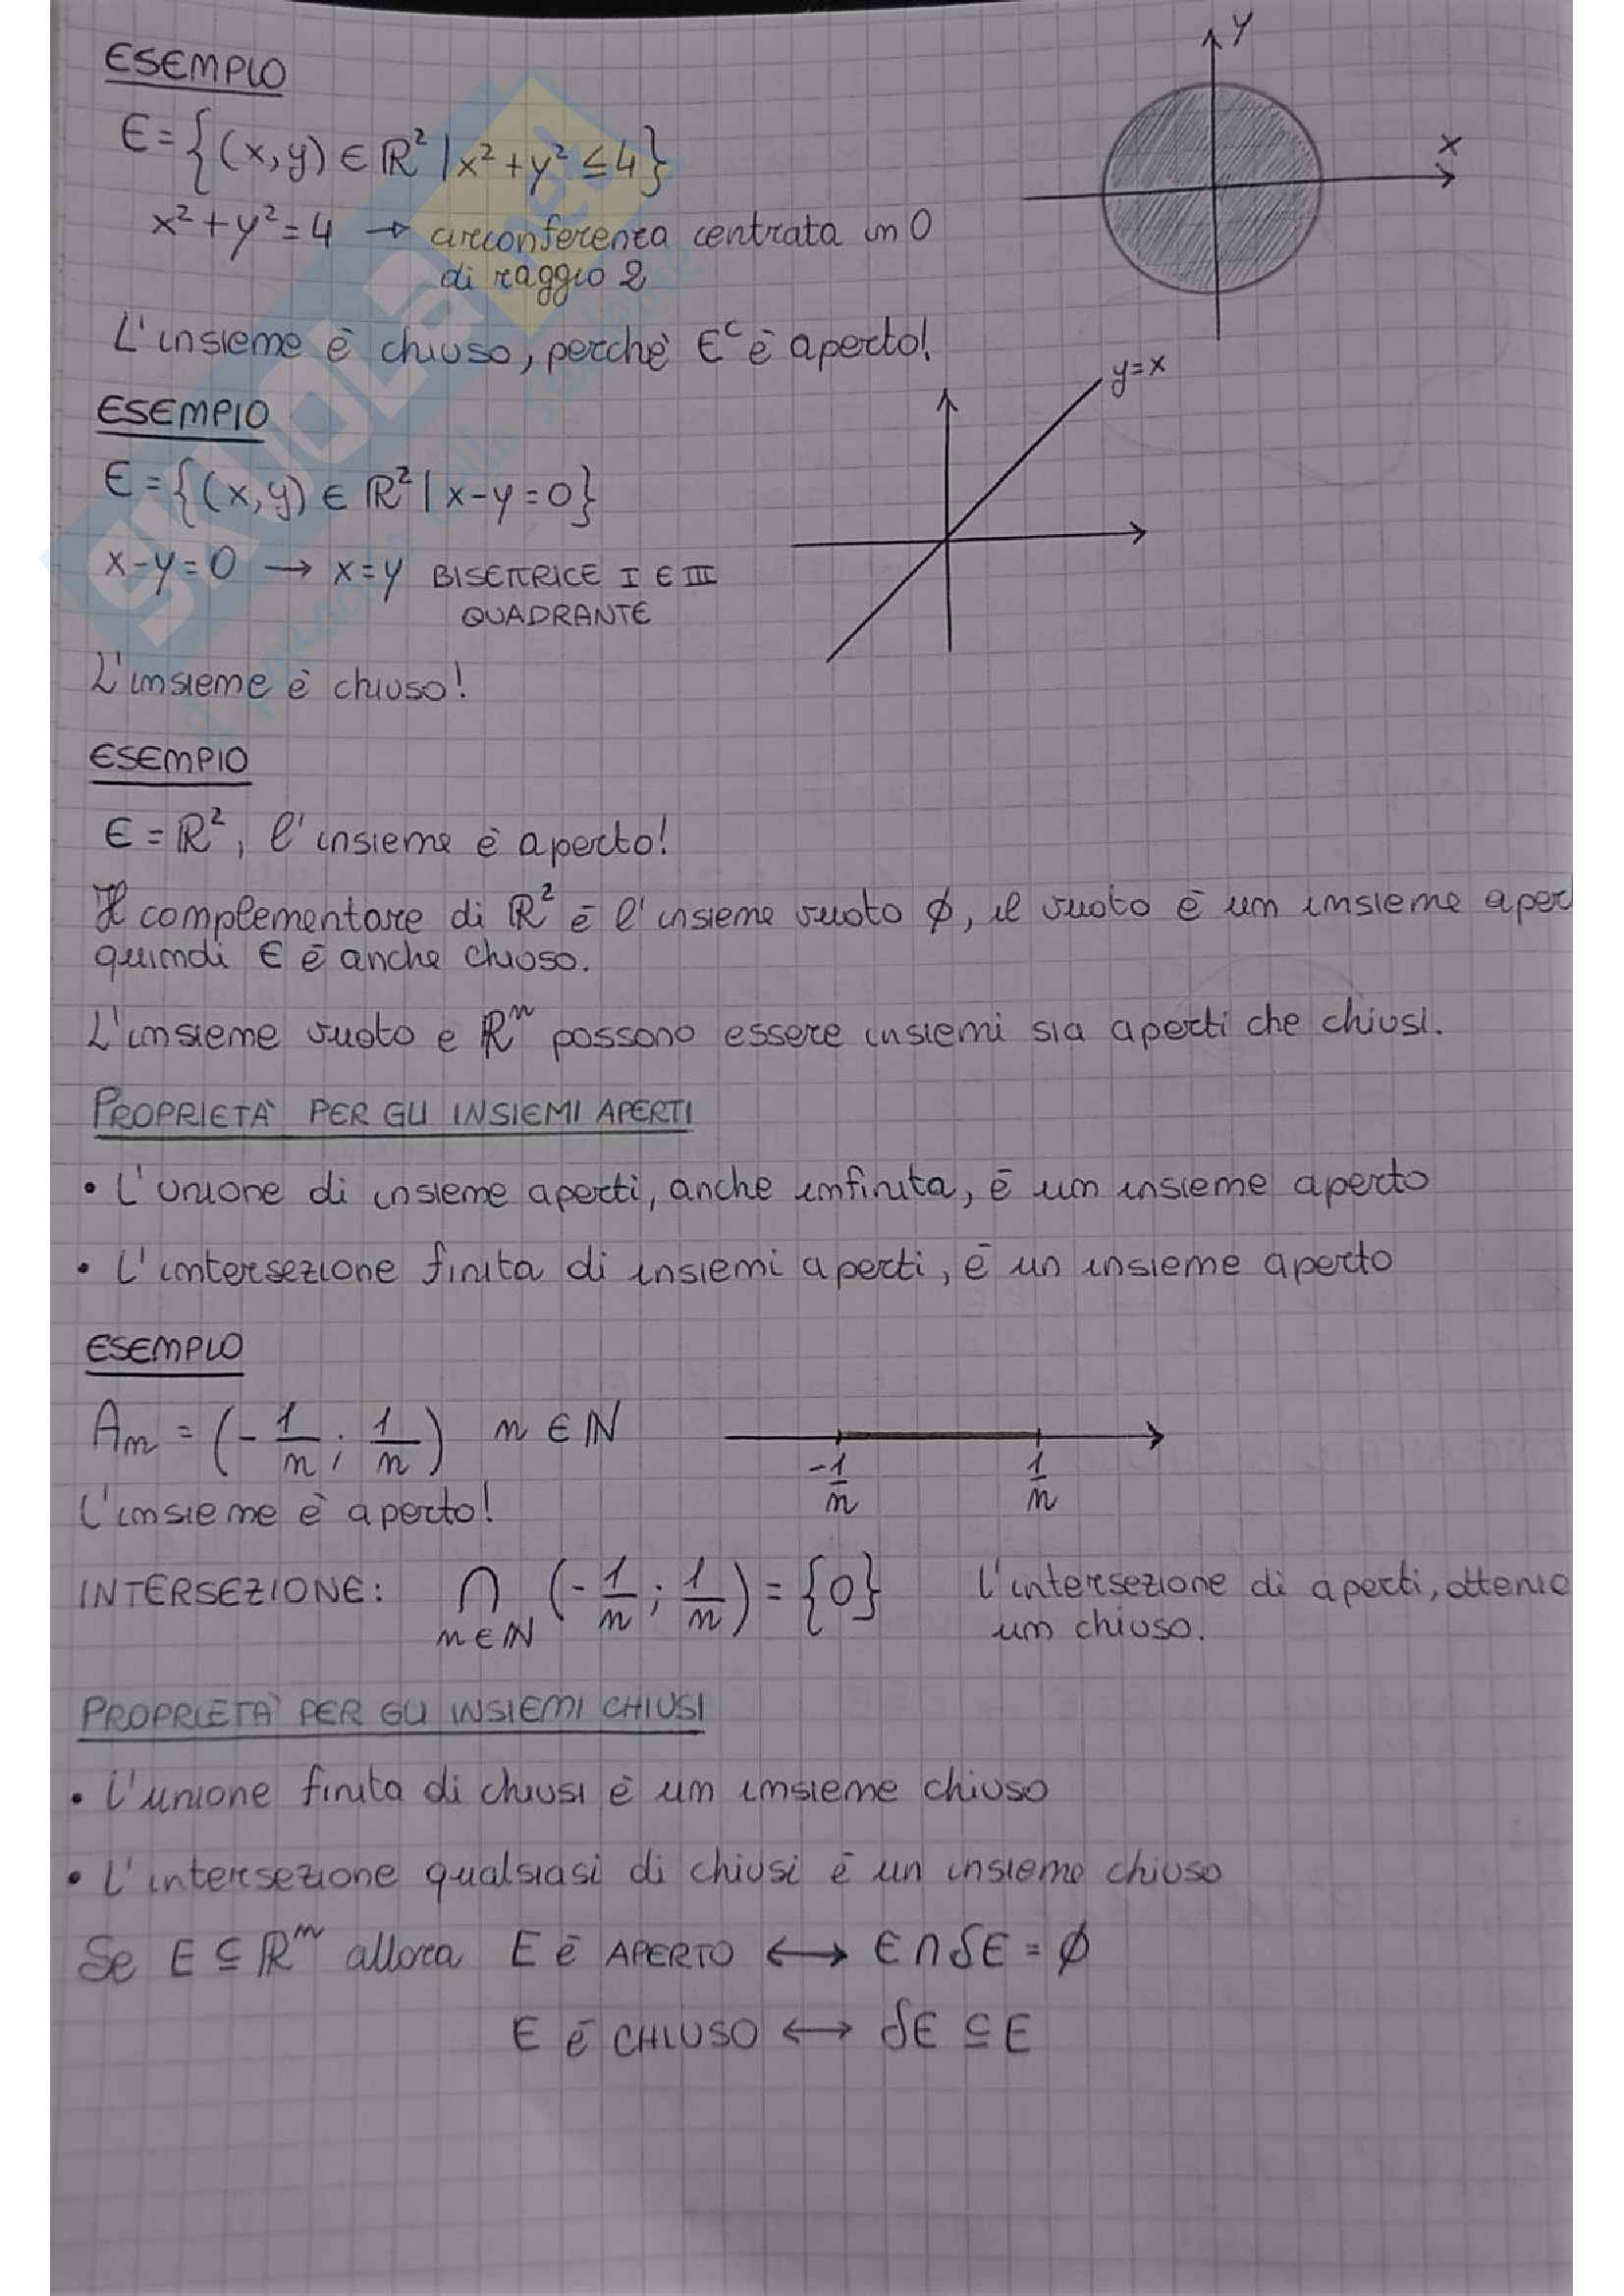 ESEMPIO
E = {(x,y) ∈ ℝ² | x² + y² ≤ 4}
x² + y² = 4 → circonferenza centrata in 0
di raggio 2
y
x
L'insieme è chiuso, perchè Eᶜ è aperto!
ESEMPIO
y = x
E = {(x,y) ∈ ℝ² | x - y = 0}
x - y = 0 → x = y BISETTRICE I E III
QUADRANTE
L'insieme è chiuso!
ESEMPIO
E = ℝ², l'insieme è aperto!
Il complementare di ℝ² è l'insieme vuoto ∅, il vuoto è un insieme aper
quindi E è anche chiuso.
L'insieme vuoto e ℝⁿ possono essere insiemi sia aperti che chiusi.
PROPRIETÀ PER GLI INSIEMI APERTI
• L'unione di insieme aperti, anche infinita, è un insieme aperto
• L'intersezione finita di insiemi aperti, è un insieme aperto
ESEMPIO
Aₙ = (-1/n ; 1/n) n ∈ ℕ
-1/n 1/n
L'insieme è aperto!
INTERSEZIONE: ∩ n∈ℕ (-1/n ; 1/n) = {0} L'intersezione di aperti, ottenic
un chiuso.
PROPRIETÀ PER GLI INSIEMI CHIUSI
• L'unione finita di chiusi è un insieme chiuso
• L'intersezione qualsiasi di chiusi è un insieme chiuso
Se E ⊆ ℝⁿ allora E è APERTO ⟷ E ∩ δE = ∅
E è CHIUSO ⟷ δE ⊆ E
SKUOLA.net